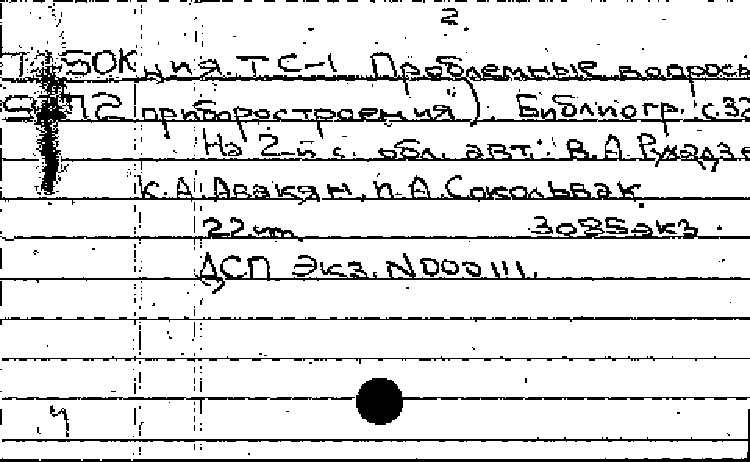 2
71-50К ция. ТС-1 Проблемные вопросы
приборостроения"). Библиогр. с.32
На 2-й с. обл. авт.: В.А.
К.А.Авакян, П.А.Сокольвак
22 cm 3085экз.
ДСП Экз. N000111.
4